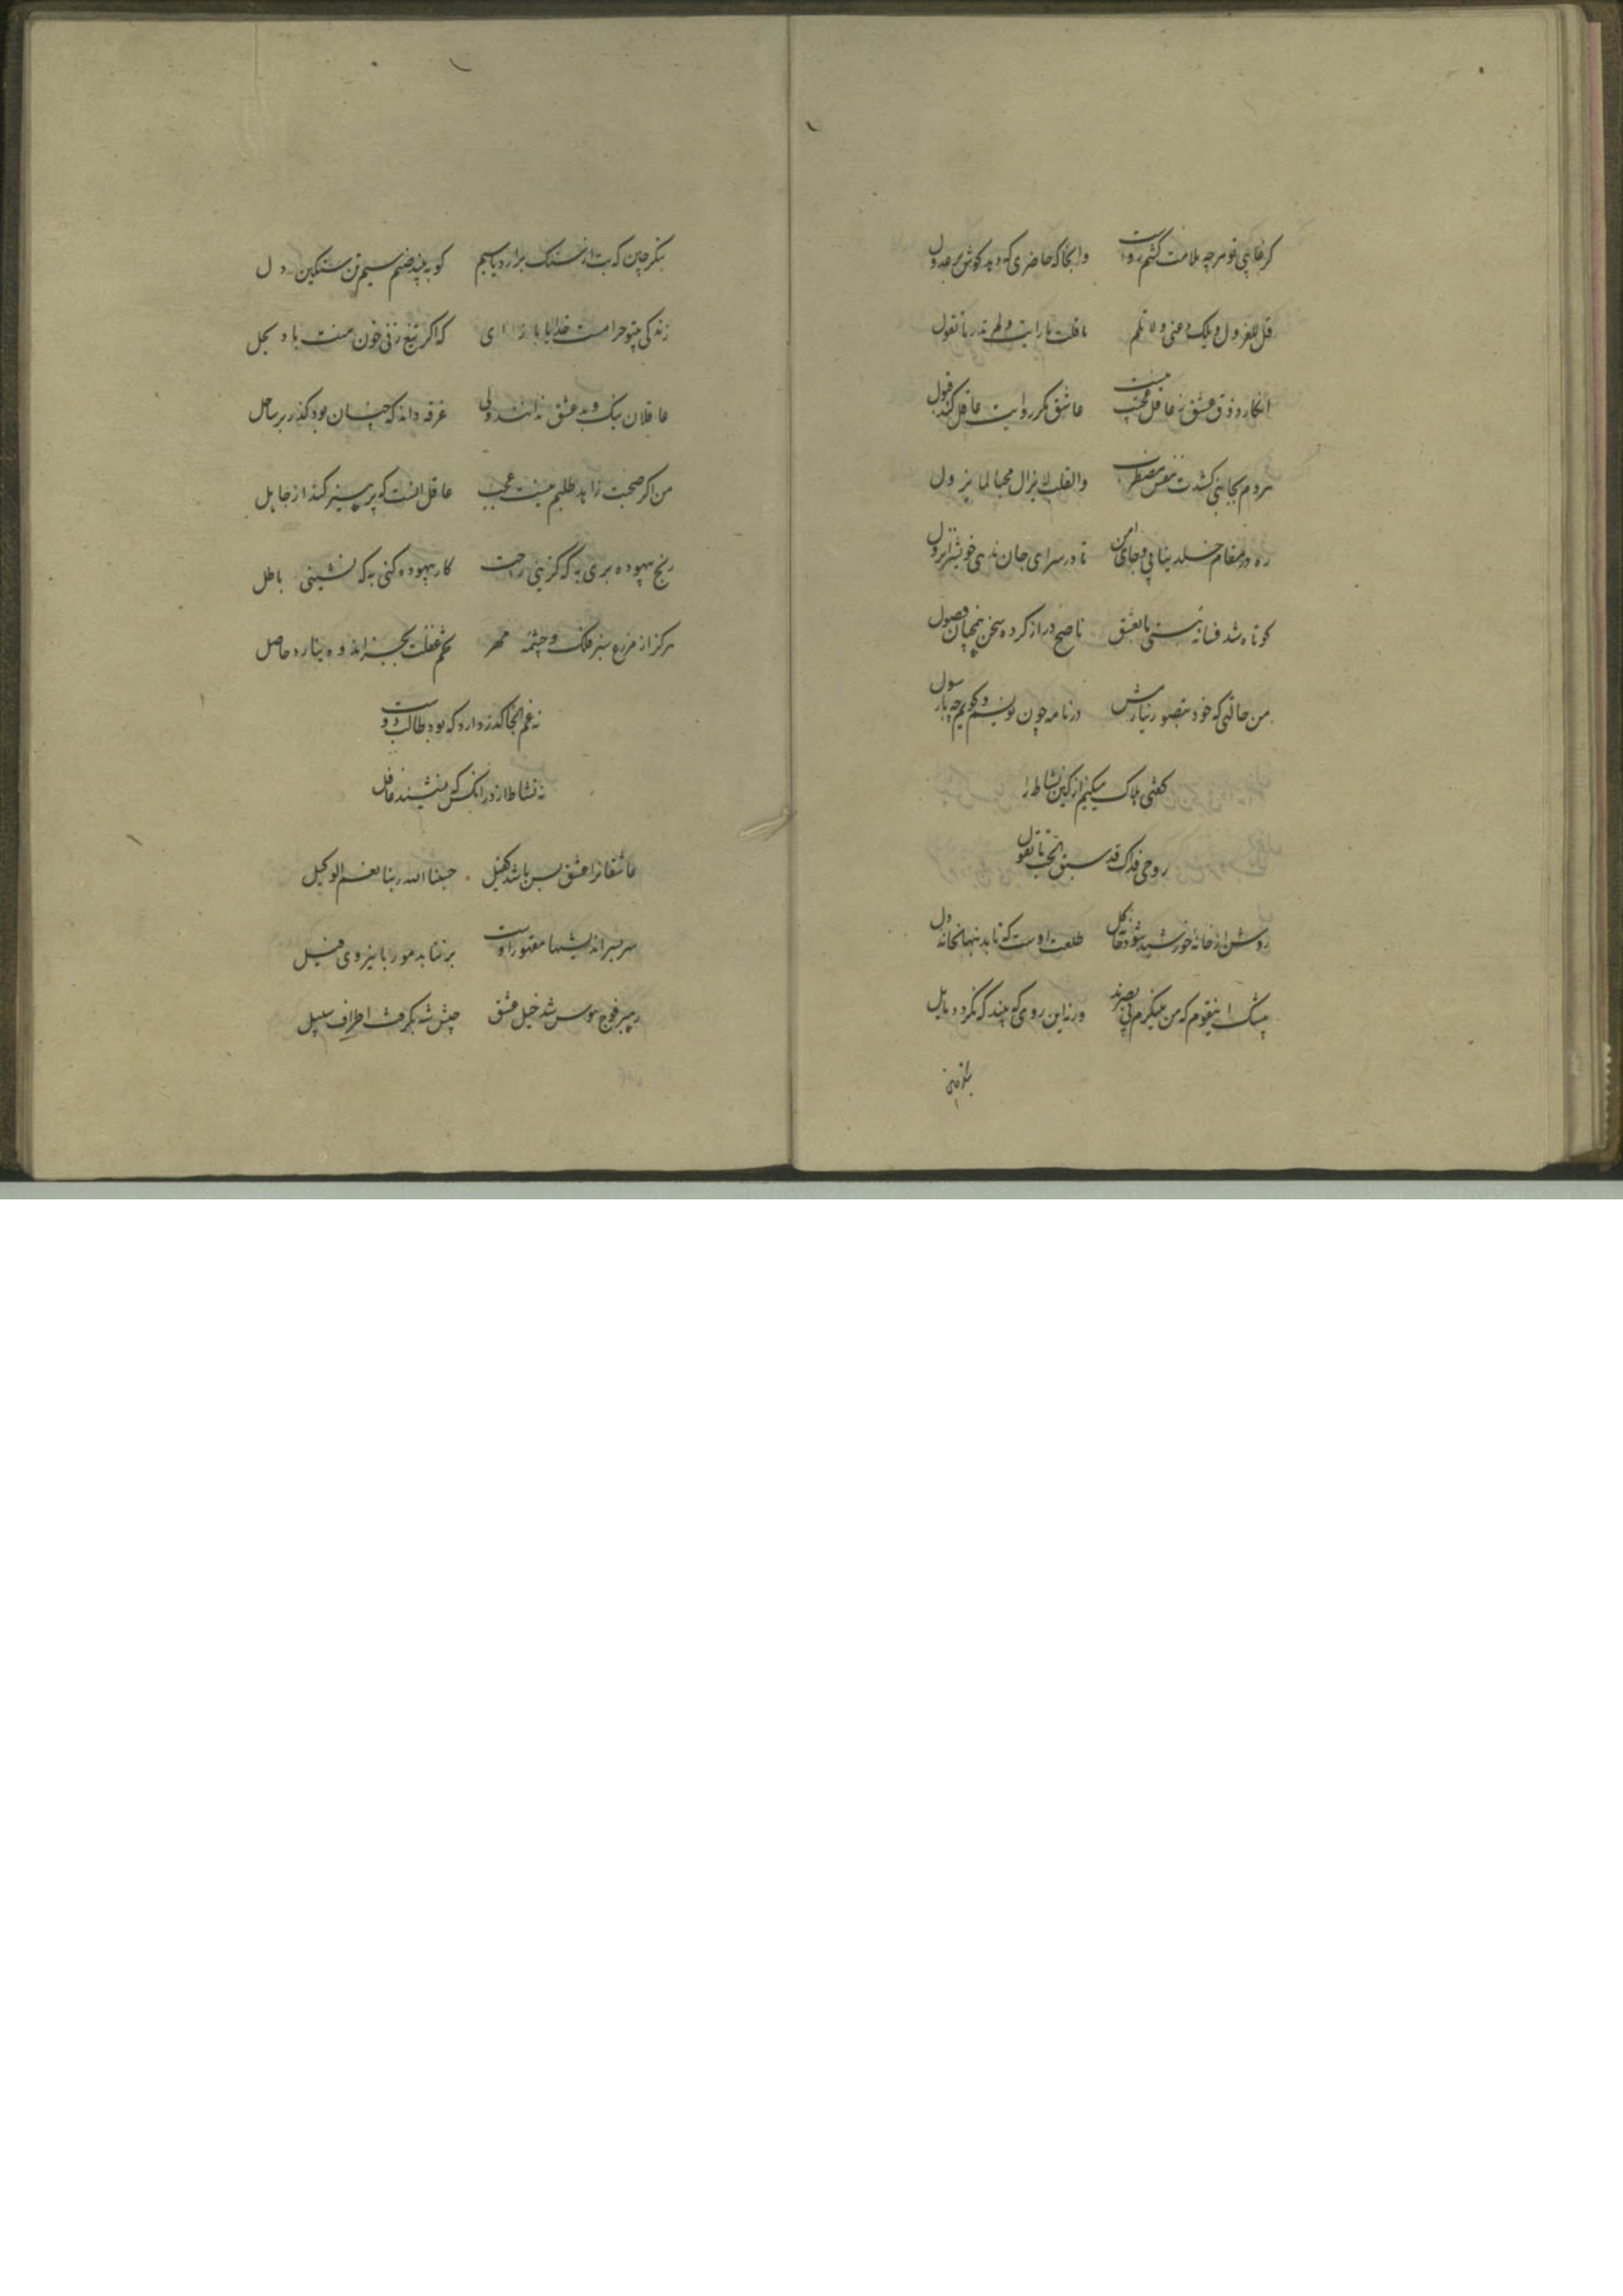 گر غایبی خورد چه ملامت کشم رواست وانجا که حاضری که دهد گوش بر عدول
قل للعذول ویلک دعنی ولا تلم ما قلت ما رایت ولم تدر ما تقول
انکار ذوق عشق ز عاقل عجیب نیست عاشق مگر روایت عاقل کند قبول
مردم بجانبی کشدت نفس مضطرب والقلب لا یزال محبا لما یزول
ره در مقام خلد نیابی و جای امن تا در سرای جان ندهی خویش را نزول
کوتاه شد فسانه هستی ما بعشق ناصح دراز کرده سخن همچنان فصول
من حالتی که خود بتصور نیارمش در نامه چون نویسم و گویم چه با رسول
گفتی هلاک میکنم از کین نشاط را
روحی فداک قد سبق الحب ما تقول
روشن از خانه خورشید شود قا کل طلعت اوست که تابد بنهانخانه دل
بیشک اینقوم که من مینگرم بی بصرند ورنه این روی که بیند که نگردد مایل
بنگر چین که بت از سنگ برارد با سیم کو به بیند صنم سیم تن سنگین دل
زندگی بیتو حرامست خدایا باز ای که اگر تیغ زنی خون منت باد بحل
عاقلان نیک و بد عشق ندانند ولی غرقه داند که چسان بود گذر بر ساحل
من اگر صحبت زاهد طلبم نیست عجب عاقل انست که پرهیز کند از جاهل
رنج بیهوده بری به که گزینی راحت کار بیهوده کنی به که نشینی باطل
هرگز از مزرع سبز فلک و چشمه مهر تخم غفلت بجز اندوه نیارد حاصل
نه غم انجا گذر دارد که بود طالب دوست
نه نشاط ارد در انکس که نشیند غافل
عاشقانرا عشق بس باشد کفیل حسبنا الله ربنا نعم الوکیل
سر بسر اندیشها مقهور اوست بر نتابد مور با نیروی فیل
رهبر فوج هوس شد خیل عشق جیش شه بگرفت اطراف سبیل